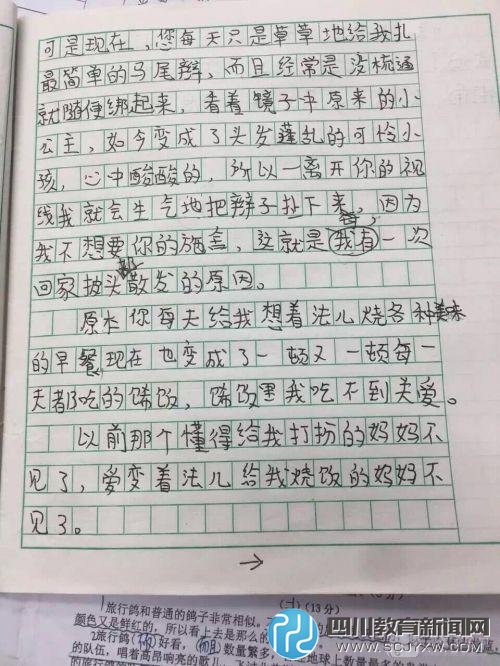 可是现在，您每天只是草草地给我扎
最简单的马尾辫，而且经常是没梳通
就随便绑起来，看着镜子中原来的小
公主，如今变成了头发蓬乱的可怜小
孩，心中酸酸的，所以一离开你的视
线我就会生气地把辫子扯下来，因为
我不想要你的施舍，这就是我有一次
回家披头散发的原因。
原本你每天给我想着法儿烧各种美味
的早餐现在也变成了一顿又一顿每一
天都吃的饭，饭里我吃不到关爱。
以前那个懂得给我打扮的妈妈不
见了，爱变着法儿给我烧饭的妈妈不
见了。
→
(13分)
旅行鸽和普通的鸽子非常相似。
颜色又是鲜红的，所以看上去是那么的
2旅行鸽( )好看，( )数量繁多
的队伍，唱着高昂响亮的歌儿，
四川教育新闻网
WWW.SCJYXW.COM